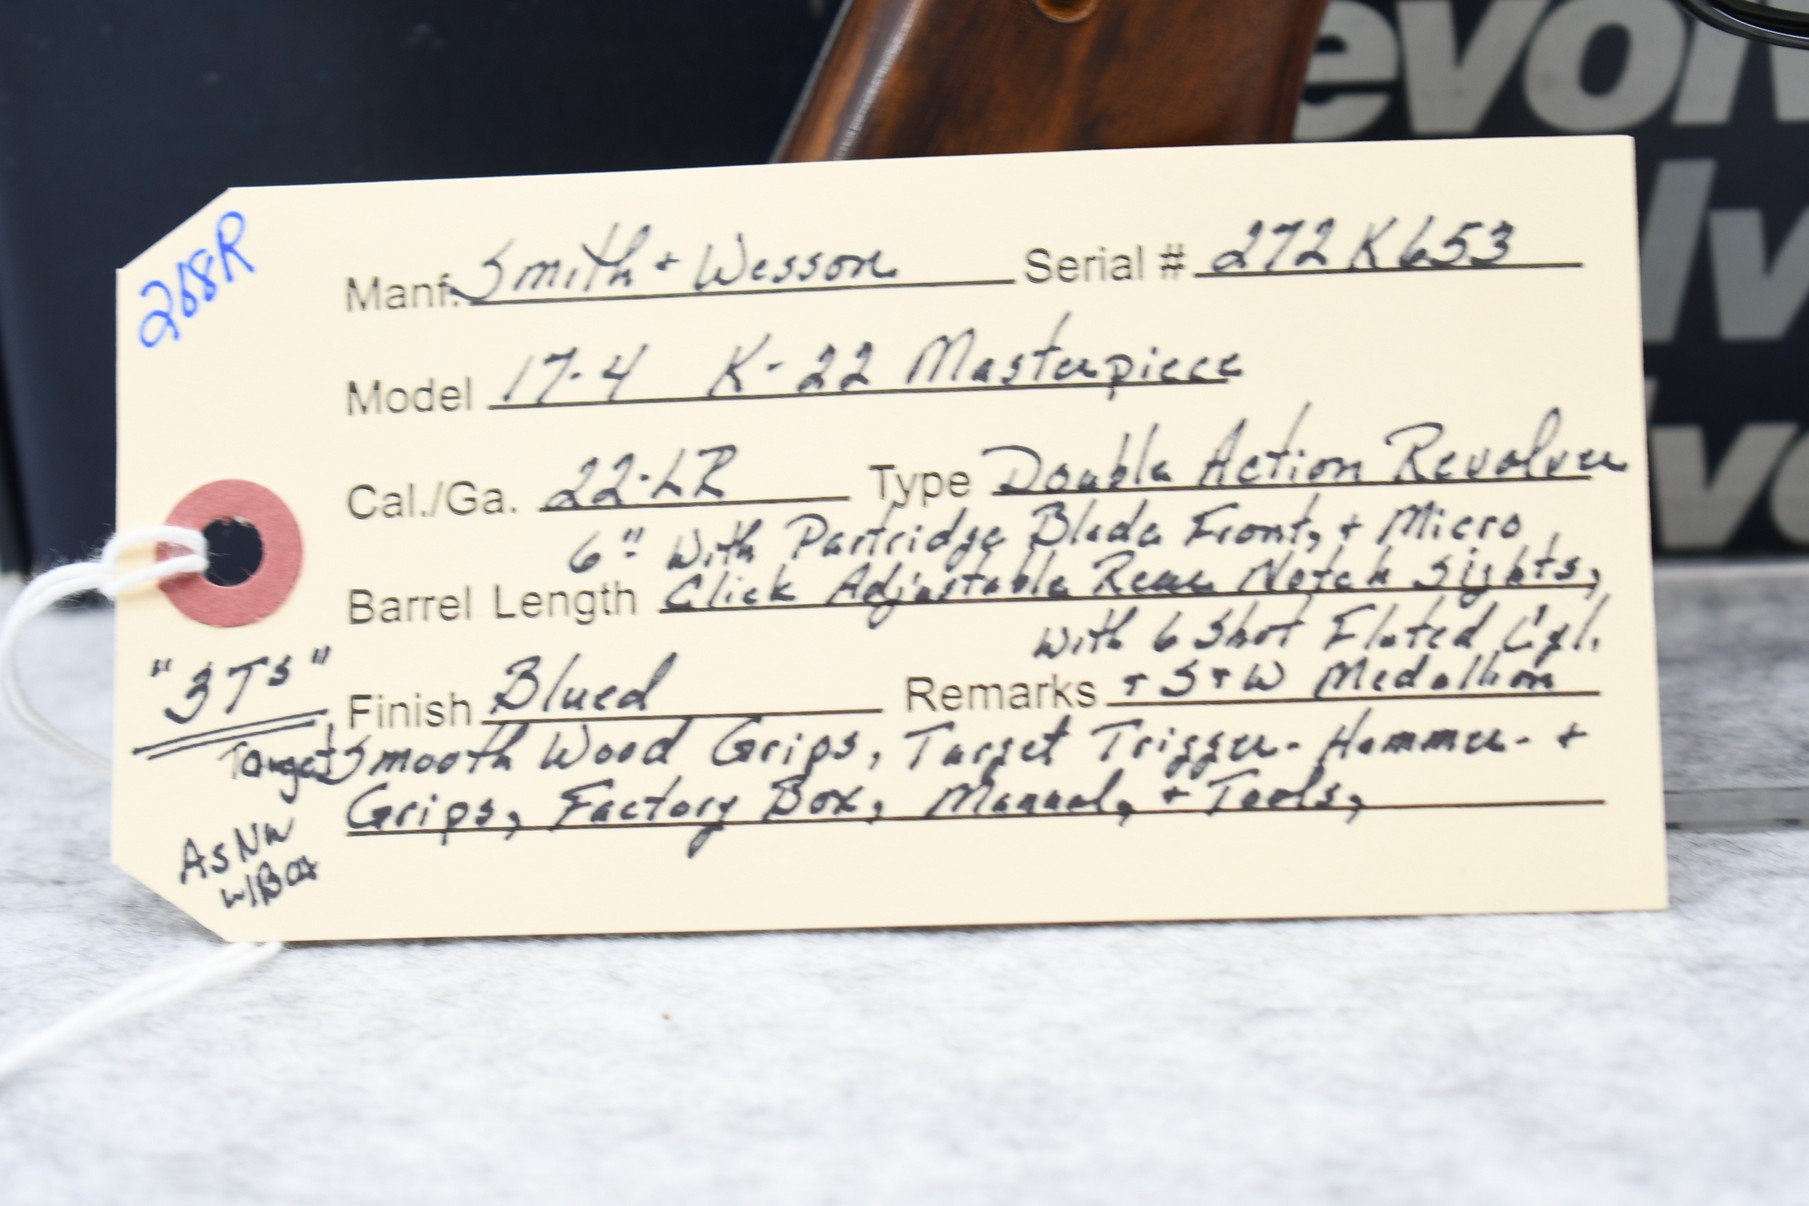 evolv
lv
vo
268R
Manf. Smith + Wesson Serial # 272K653
Model 17-4 K-22 Masterpiece
Cal./Ga. 22·LR Type Double Action Revolver
6" With Partridge Blade Front, + Micro
Barrel Length Click Adjustable Rear Notch Sights,
With 6 Shot Fluted Cyl.
"3TS"
Finish Blued Remarks + S+W Medallion
Target Smooth Wood Grips, Target Trigger - Hammer - +
Grips, Factory Box, Manual, + Tools,
As Nw
w/Box